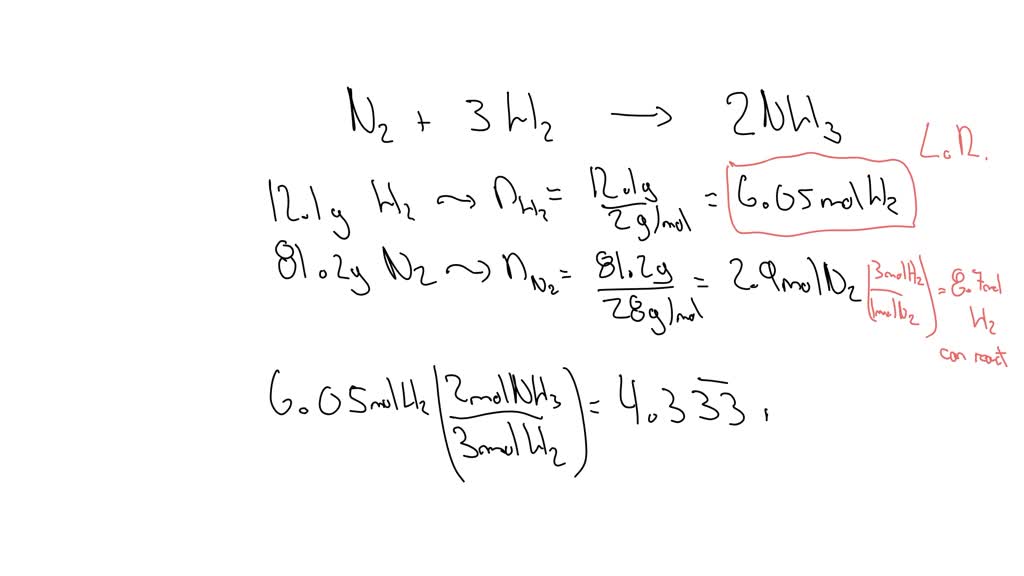 N₂ + 3H₂ → 2NH₃
L.R.
12.1g H₂ ⇝ n_H₂ = 12.1g / 2g/mol = 6.05 mol H₂
81.2g N₂ ⇝ n_N₂ = 81.2g / 28g/mol = 2.9 mol N₂ (3mol H₂ / 1mol N₂) = 8.7 mol
H₂
can react
6.05 mol H₂ (2mol NH₃ / 3mol H₂) = 4.33̅3